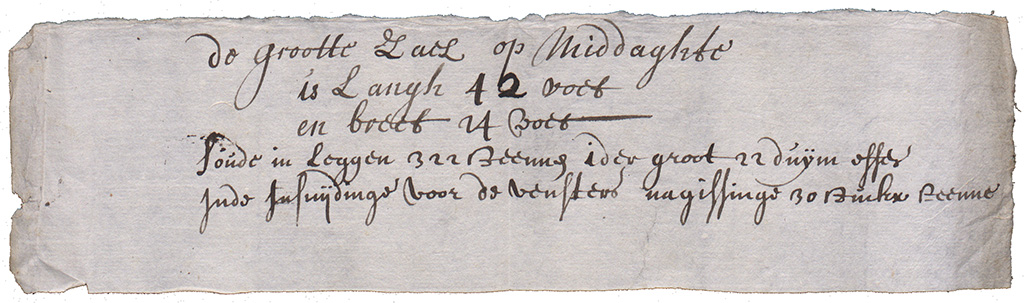 de grootte Zael op Middaghte
is Langh 42 voet
en breet 24 voet
soude in Leggen 322 Steenne ider groot 22 duijm effer
inde Insnijdinge voor de vensters nagissinge 30 Stucke Steenne